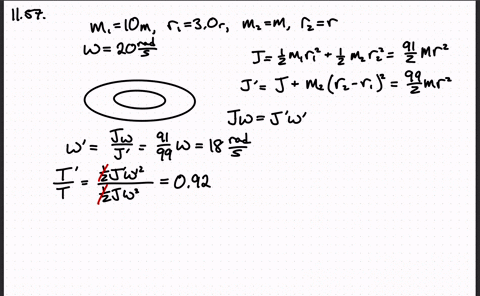 11.57.
m₁=10m, r₁=3.0r, m₂=m, r₂=r
ω=20 rad/s
J=½m₁r₁²+½m₂r₂²=91/2 mr²
J'=J+m₂(r₂-r₁)²=99/2 mr²
Jω=J'ω'
ω'=Jω/J'=91/99 ω=18 rad/s
T'/T=½J'ω'²/½Jω²=0.92